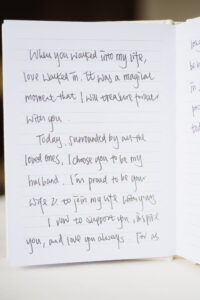 When you walked into my life,
love walked in. It was a magical
moment that I will treasure forever
with you.
Today, surrounded by all the
loved ones, I choose you to be my
husband. I'm proud to be your
wife & to join my life with yours
I vow to support you, inspire
you, and love you always. For as